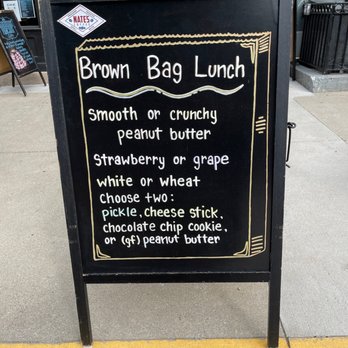 NATES
Brown Bag Lunch
smooth or crunchy
peanut butter
strawberry or grape
white or wheat
Choose two:
pickle, cheese stick,
chocolate chip cookie,
or (gf) peanut butter